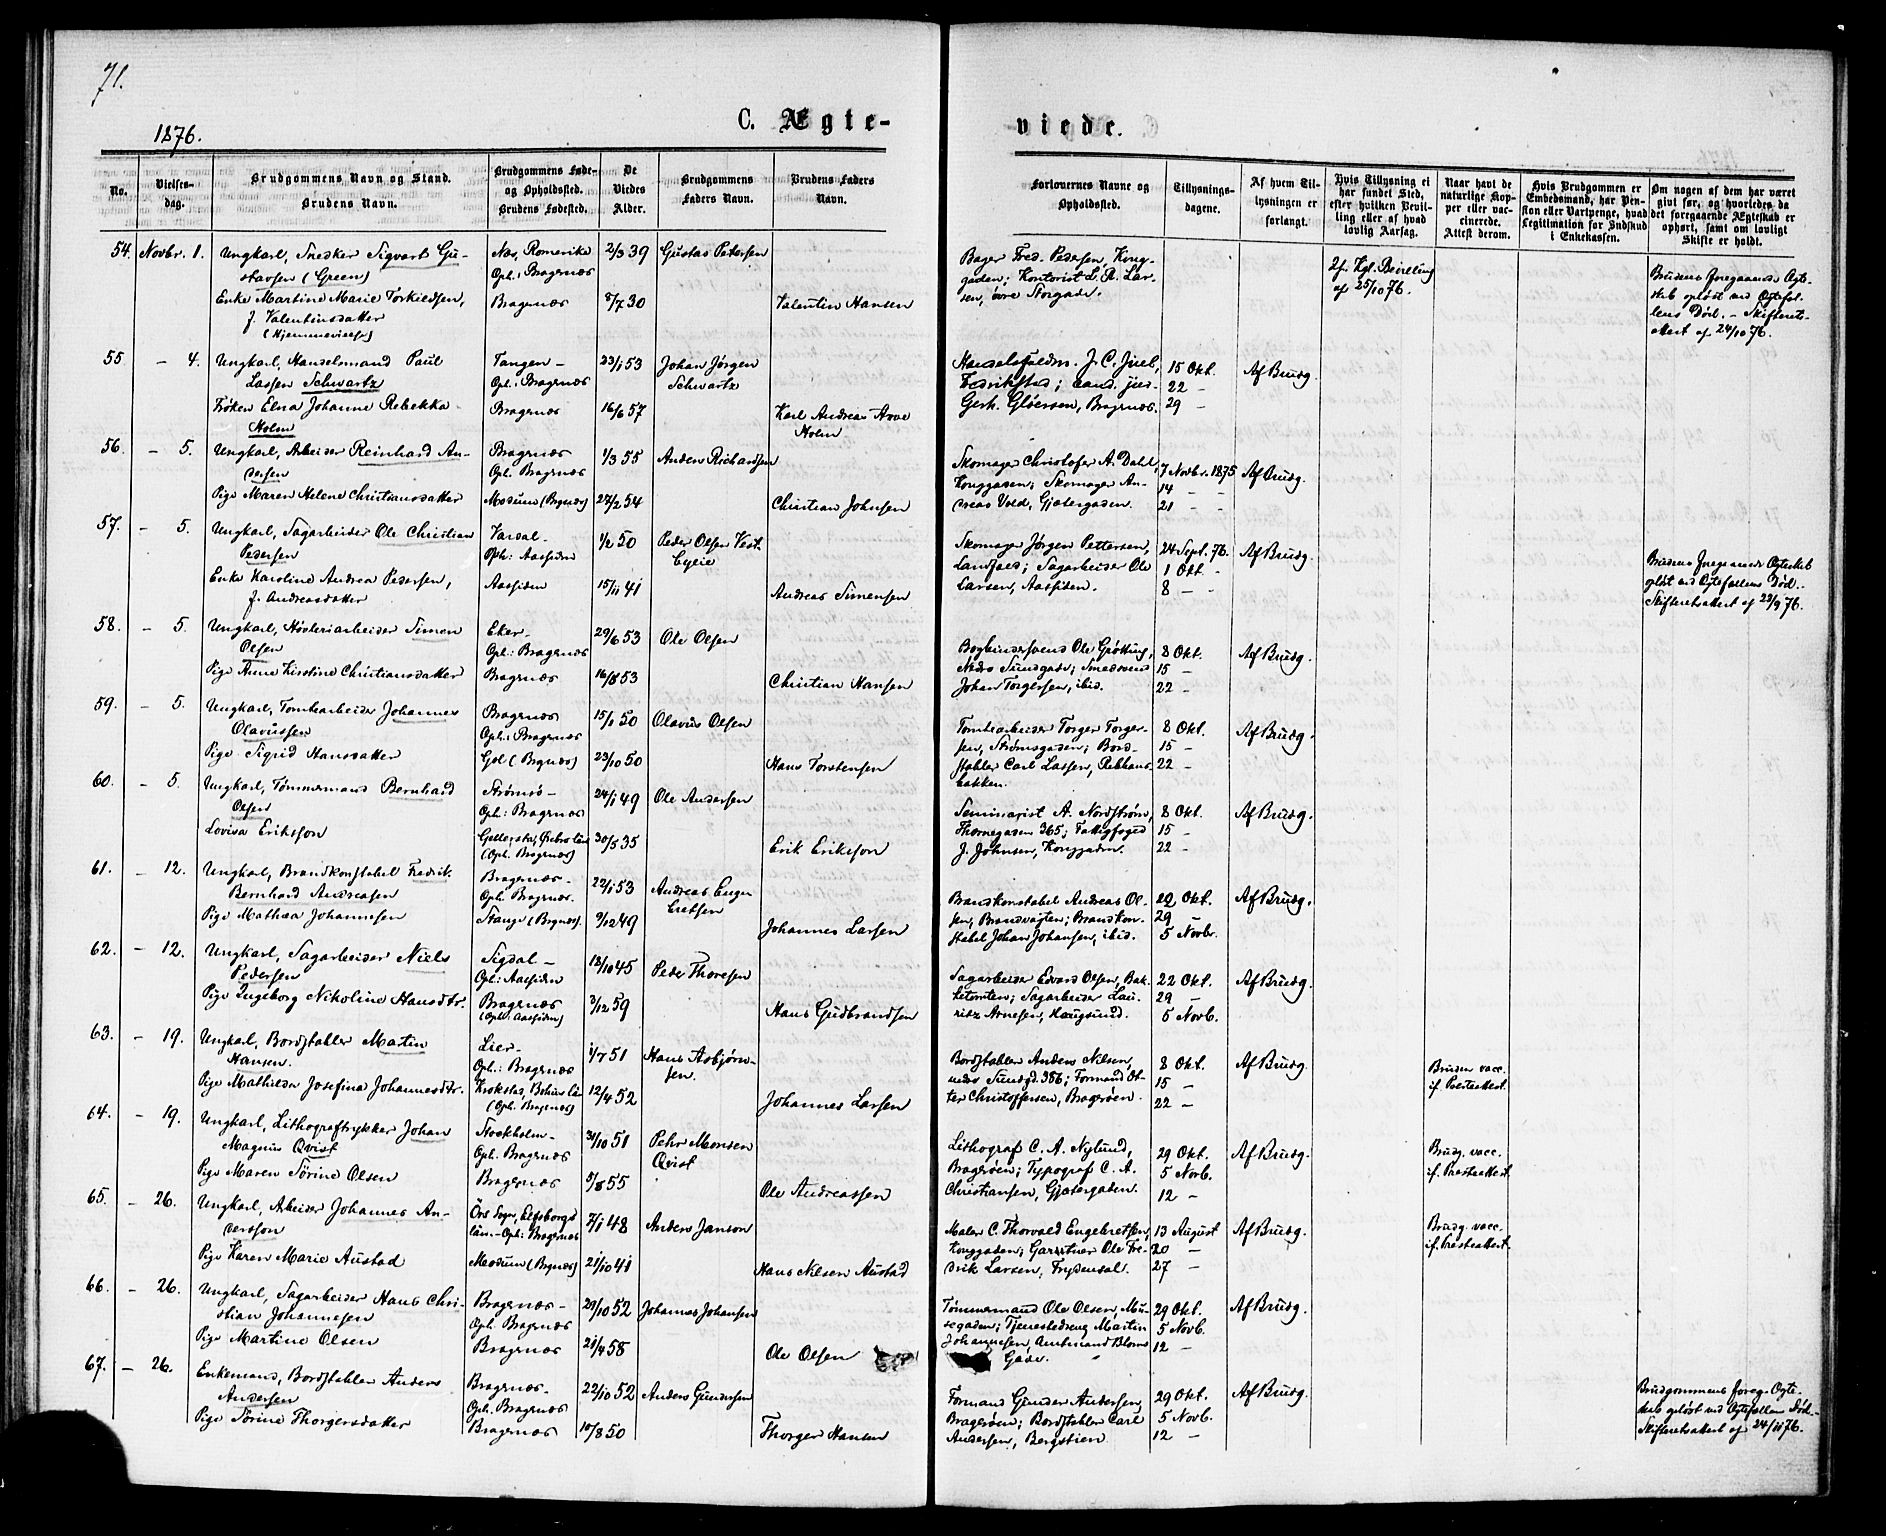 71.
1876.
C. Ægte-
viede.
No.
Vielses-
dag.
Brudgommens Navn og Stand.
Brudens Navn.
Brudgommens Føde-
og Opholdssted.
Brudens Fødested.
De
Viedes
Alder.
Brudgommens
Faders Navn.
Brudens Faders
Navn.
Forlovernes Navne og
Opholdssted.
Tillysnings-
dagene.
Af hvem Til-
lysningen er
forlangt.
Hvis Tillysning ei
har fundet Sted,
efter hvilken Bevil-
ling eller af hvad
lovlig Aarsag.
Naar havt de
naturlige Kop-
per eller vac-
cinerede.
Attest derom.
Hvis Brudgommen er
Embedsmand, har Pen-
sion eller Vartpenge, hvad
Legitimation for Indskud
i Enkekassen.
Om nogen af dem har været
givt før, og hvorledes da
det foregaaende Ægteskab er
ophørt, samt om lovligt
Skifte er holdt.
54. Novbr. 1. Ungkarl, Snedker Sigvart Gu-
stavsen (Green)
Enke Martine Marie Torkildsen,
f. Valentinsdatter
(Hjemmevielse)
Næs, Romerike
Oph: Bragernæs
Bragernæs
2/3 39
8/7 30
Gustav Petersen
Valentin Hansen
Bager Fred. Pedersen, Kong-
gaden; Kontorist L. R. Lar-
sen, øvre Storgade.
If. Kgl. Bevilling
af 25/10 76.
Brudens foregaaende Ægte-
skab opløst ved Ægtefæl-
lens Død. - Skifteret-
attest af 24/10 76.
55 - 4. Ungkarl, Handelsmand Paul
Lassen Schwartz
Frøken Elna Johanne Rebekka
Holm
Tangen -
Oph: Bragernæs
Bragernæs
23/1 53
16/6 57
Johan Jørgen
Schwartz
Karl Andreas
Holm
Handelsfuldm. J. C. Juel,
Fredrikstad; cand. jur.
Gerh. Gløersen, Bragernæs.
15 Okt.
22 -
29 -
Af Brudg.
56. - 5. Ungkarl, Arbeider Reinhard An-
dersen
Pige Maren Helene Christiansdatter
Bragernæs
Oph. Bragernæs
Modum (Bragnæs)
1/3 55
27/2 54
Anders Richardsen
Christian Johnsen
Skomager Christofer A. Dahl,
Konggaden; Skomager An-
dreas Vold, Gjetergaden.
7 Novbr. 1875
14 - -
21 - -
Af Brudg.
57. - 5. Ungkarl, Sagarbeider Ole Christian
Pedersen
Enke Karoline Andrea Pedersen,
f. Andreasdatter
Vardal -
Oph: Aassiden
Aassiden
1/2 50
15/11 41
Peder Olsen Vest-
Andreas Simensen
Skomager Jørgen Pettersen,
Landfald; Sagarbeider Ole
Larsen, Aassiden.
24 Sept. 76.
1 Okt. -
8 - -
Af Brudg.
Brudens foregaaende Ægteskab
opløst ved Ægtefællens Død. -
Skifteretsattest af 23/9 76.
58. - 5. Ungkarl, Høvleriarbeider Simen
Olsen
Pige Anne Kirstine Christiansdatter
Eker -
Oph: Bragernæs
Bragernæs
29/6 53
16/8 53
Ole Olsen
Christian Hansen
Bogbindersvend Ole Grøtting,
Nedre Sundgade; Smedsvend
Johan Torgersen, ibid.
8 Okt.
15 -
22 -
Af Brudg.
59. - 5. Ungkarl, Tomtearbeider Johannes
Olaviussen
Pige Sigrid Hansdatter
Bragernæs
Oph: Bragernæs
Gol (Bragnæs)
15/1 50
23/10 50
Olavius Olsen
Hans Torstensen
Tomtearbeider Torger Torger-
sen, Strømsgaden; Bord-
stabler Carl Lassen, Rebbans-
bakken.
8 Okt.
15 -
22 -
Af Brudg.
60. - 5. Ungkarl, Tømmermand Bernhard
Olsen
Lovisa Eriksson
Strømsø -
Oph: Bragernæs
Gellersta, Ørebro län
(Oph. Bragernæs)
24/1 49
30/5 35
Ole Andersen
Erik Eriksson
Seminarist A. Nordstrøm,
Thornegaden 365; Fattigfoged
J. Johnsen, Konggaden.
8 Okt.
15 -
22 -
Af Brudg.
61. - 12. Ungkarl, Brandkonstabel Fredrik
Bernhard Andreasen
Pige Mathea Johannesen
Bragernæs -
Oph. Bragernæs.
Stange (Bragnæs)
22/1 53
9/12 49
Andreas Enger
Johannes Larsen
Brandkonstabel Andreas Ol-
sen, Brandvagten; Brandkon-
stabel Johan Johansen, ibid.
22 Okt.
29 -
5 Novbr.
Af Brudg.
62. - 12. Ungkarl, Sagarbeider Niels
Pedersen
Pige Ingeborg Nikoline Hansdtr.
Sigdal -
Oph: Aassiden
Bragernæs
(Oph. Aassiden)
18/10 45
3/12 59
Peder Thoresen
Hans Gudbrandsen
Sagarbeider Edvard Olsen, Bak-
ketomten; Sagarbeider Lau-
ritz Arnesen, Haugsund.
22 Okt.
29 -
5 Novb.
Af Brudg.
63. - 19. Ungkarl, Bordstabler Martin
Hansen.
Pige Mathilda Josefina Johannesdtr.
Lier -
Oph: Bragernæs
Krokstad, Bohus län
(Oph. Bragernæs)
1/7 51
12/4 52
Hans Asbjørn-
sen.
Johannes Larsen
Bordstabler Anders Nilsen,
nedre Sundgd. 386; Formand Ot-
ter Christoffersen, Bragerøen.
8 Okt.
15 -
22 -
Af Brudg.
Bruden vacc.
if. Præsteattest.
64. - 19. Ungkarl, Lithograftrykker Johan
Magnus Qvist
Pige Maren Sørine Olsen
Stockholm -
Oph. Bragernæs
Bragernæs
31/10 51
9/8 55
Pehr Monsen
Qvist
Ole Andreassen
Lithograf C. A. Nylund,
Bragerøen; Typograf C. A.
Christiansen, Gjetergaden.
29 Okt.
5 Novb.
12 -
Af Brudg.
Brudg. vacc.
if. Præsteattest.
65. - 26. Ungkarl, Arbeider Johannes An-
dersson
Pige Karen Marie Austad
Örs Sogn, Elfsborgs
län - Oph: Bragernæs
Modum (Bragnæs)
7/1 48
21/10 41
Anders Janson
Hans Nilsen Austad
Maler C. Thorvald Engebretsen,
Konggaden; Gartner Ole Fre-
drik Larsen, Frydendal.
13 August
20 -
27 -
Af Brudg.
Brudg. vacc.
if. Præsteattest.
66. - 26. Ungkarl, Sagarbeider Hans Chri-
stian Johannesen
Pige Martine Olsen
Bragernæs -
Oph. Bragernæs
Bragernæs
29/10 52
21/4 58
Johannes Johansen
Ole Olsen
Tømmermand Ole Olsen, Mu-
segaden; Tjenestedreng Martin
Johannesen, Amtmand Bloms
Gade.
29 Okt.
5 Novb.
12 -
Af Brudg.
67. - 26. Enkemand, Bordstabler Anders
Andersen
Pige Sørine Thorgersdatter
Bragernæs -
Oph. Bragernæs
Bragernæs
22/10 52
10/8 50
Anders Gundersen
Thorger Hansen
Formand Gunder Andersen,
Bragerøen; Bordstabler Carl
Andersen, Bergstien
29 Okt.
5 Novb.
12 -
Af Brudg.
Brudgommens foreg. Ægte-
skab opløst ved Ægtefællens Død. -
Skifteretsattest af 24/11 76.